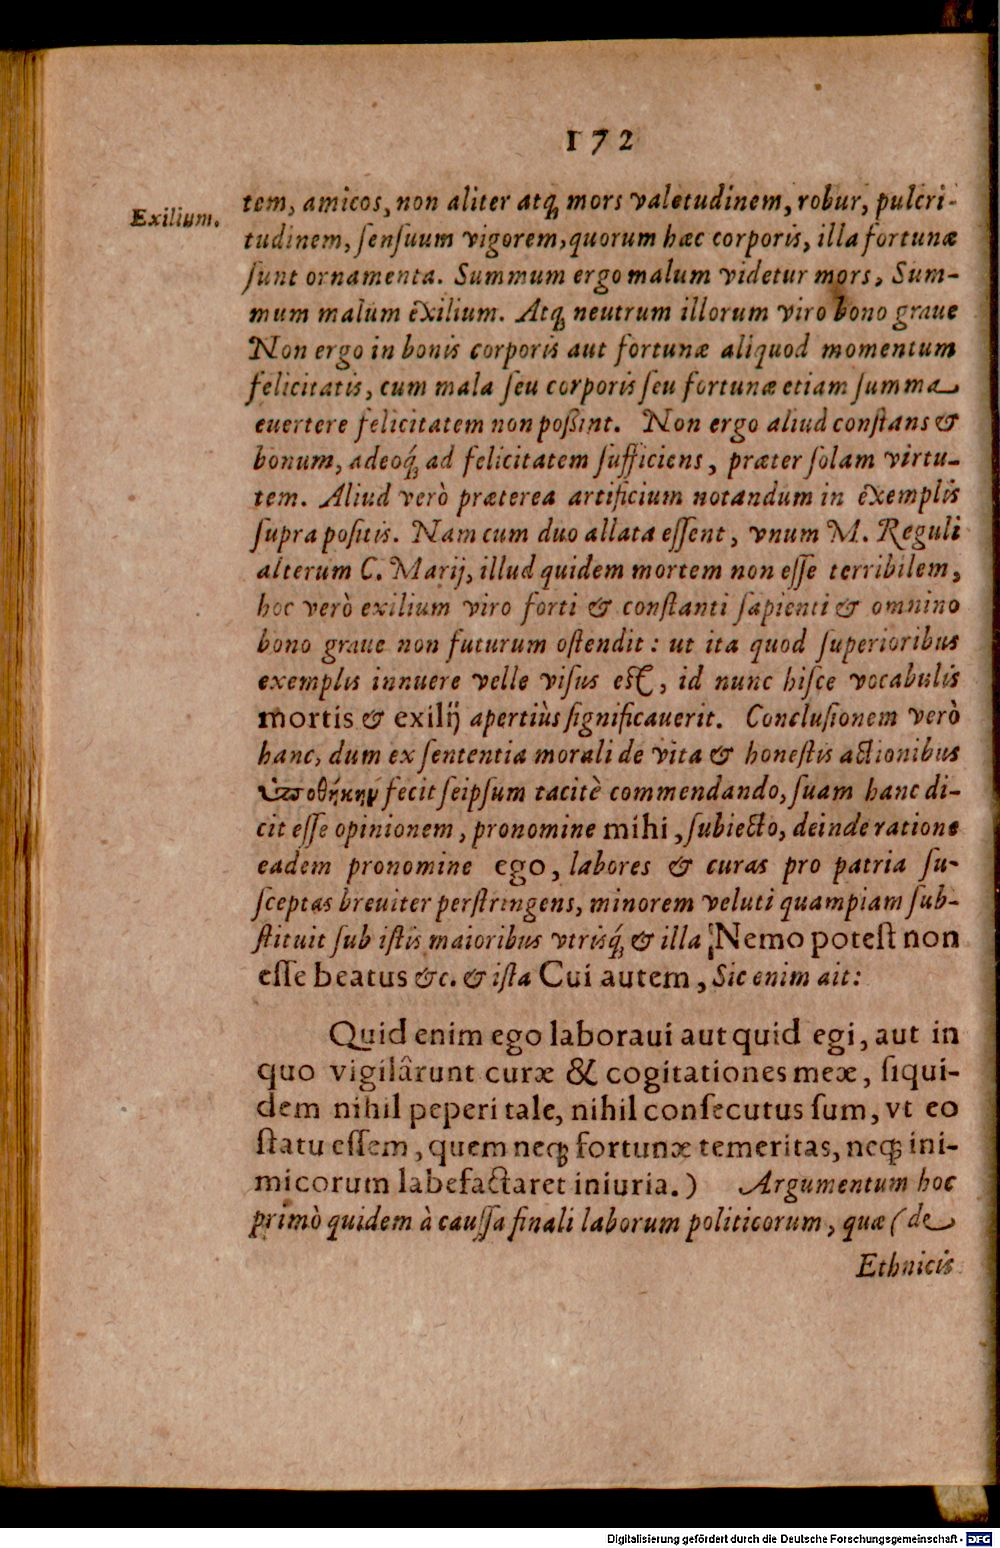 172
Exilium.
tem, amicos, non aliter atq; mors valetudinem, robur, pulcri-
tudinem, ſenſuum vigorem, quorum hæc corporis, illa fortunæ
ſunt ornamenta. Summum ergo malum videtur mors, Sum-
mum malum exilium. Atq; neutrum illorum viro bono graue
Non ergo in bonis corporis aut fortunæ aliquod momentum
felicitatis, cum mala ſeu corporis ſeu fortunæ etiam ſumma
euertere felicitatem non poßint. Non ergo aliud conſtans &
bonum, adeoq́; ad felicitatem ſufficiens, præter ſolam virtu-
tem. Aliud verò præterea artificium notandum in exemplis
ſupra poſitis. Nam cum duo allata eſſent, vnum M. Reguli
alterum C. Marij, illud quidem mortem non eſſe terribilem,
hoc verò exilium viro forti & conſtanti ſapienti & omnino
bono graue non futurum oſtendit: ut ita quod ſuperioribus
exemplis innuere velle viſus eſt, id nunc hiſce vocabulis
mortis & exilij apertiùs ſignificauerit. Concluſionem verò
hanc, dum ex ſententia morali de vita & honeſtis actionibus
ὑποθήκην fecit ſeipſum tacitè commendando, ſuam hanc di-
cit eſſe opinionem, pronomine mihi, ſubiecto, deinde ratione
eadem pronomine ego, labores & curas pro patria ſu-
ſceptas breuiter perſtringens, minorem veluti quampiam ſub-
ſtituit ſub iſtis maioribus vtrisq́; & illa Nemo poteſt non
eſſe beatus &c. & iſta Cui autem, Sic enim ait:
Quid enim ego laboraui aut quid egi, aut in
quo vigilârunt curæ & cogitationes meæ, ſiqui-
dem nihil peperi tale, nihil conſecutus ſum, vt eo
ſtatu eſſem, quem neq; fortunæ temeritas, neq; ini-
micorum labefactaret iniuria.) Argumentum hoc
primò quidem à cauſſa finali laborum politicorum, quæ (de
Ethnicis
Digitalisierung gefördert durch die Deutsche Forschungsgemeinschaft - DFG